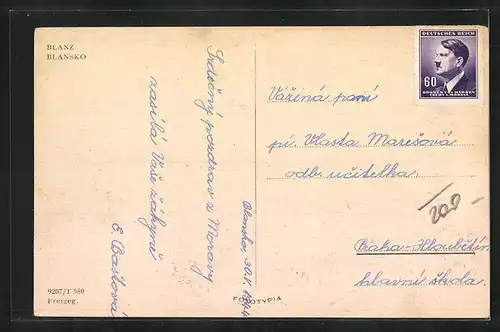 BLANZ
BLANSKO
Srdečný pozdrav z Moravy
zasílá Vaše žákyně
E. Baštová
Blansko, 30.V. 1944
9207/T 580
Freigeg.
FOTOTYPIA
DEUTSCHES REICH
60
BÖHMEN U. MÄHREN
ČECHY A MORAVA
Vážená paní
pí. Vlasta Marešová
odb. učitelka.
200-
Praha-Hloubětín
hlavní škola.